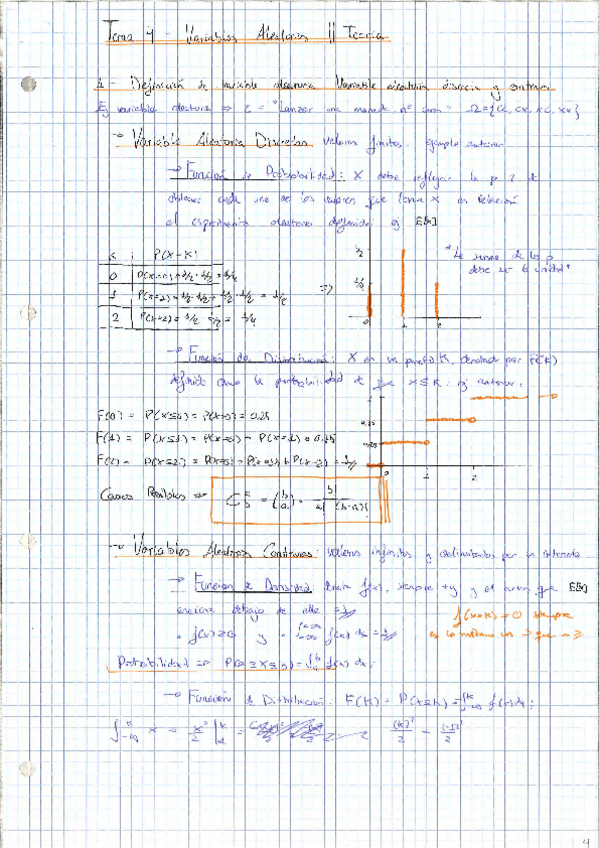 Tema 4 - Variables Aleatorias || Teoría
1 - Definición de variable aleatoria. Variable aleatoria discreta y continua
Ej variable aleatoria ⇒ ℰ = "Lanzar una moneda, nº caras" Ω={CC, CX, XC, XX}
→ Variable Aleatoria Discretas: valores finitos. ejemplo anterior
→ Función de Probabilidad: X debe reflejar la p de
obtener cada uno de los valores que toma X en relación
al experimento aleatorio definido ej E[x]
"La suma de las p
debe ser la unidad"
K P(X=K)
0 P(X=0)=1/2·1/2=1/4
1
2 P(X=2)=1/2·1/2=1/4
⇒
1/2
1/4
0 1 2
→ Función de Distribución: X en un punto K, denotado por F(K)
definido como la probabilidad de que X≤K. ej anterior:
F(0) = P(X≤0) = P(X=0) = 0.25
F(1) = P(X≤1) = P(X=0)
F(2) = P(X≤2) =
1
0 1 2
Casos Posibles ⇒ C = (b a) = b! / a! (b-a)!
→ Variables Aleatorias Continuas: valores infinitos y delimitados por un intervalo
→ Función de Densidad: f(x), siempre +y y el área que E[x]
encierra debajo de ella = 1
· f(x)≥0 y · ∫ f(x) dx = 1
f(x=k) = 0 siempre
Probabilidad ⇒ P(a≤X≤b) = ∫ f(x) dx;
→ Función de Distribución: F(K) = P(X≤K) = ∫ f(x) dx;
∫ x = x²/2 | = (K)²/2 -
4